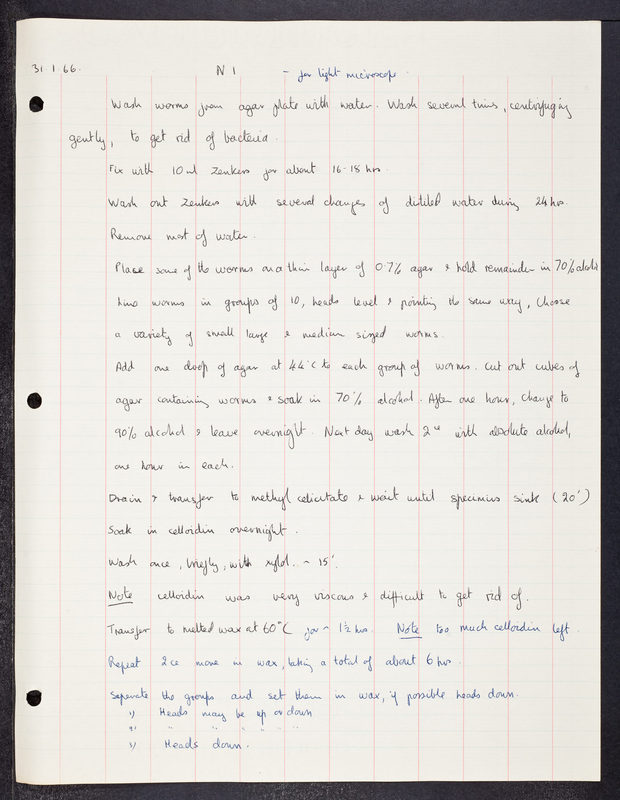 31.1.66. N1 - for light microscope.
Wash worms from agar plate with water. Wash several times, centrifuging
gently, to get rid of bacteria.
Fix with 10ml Zenkers for about 16-18 hrs.
Wash out Zenkers with several changes of distilled water during 24 hrs.
Remove most of water.
Place some of the worms on a thin layer of 0.7% agar & hold remainder in 70% alcohol
Line worms in groups of 10, heads level & pointing the same way, Choose
a variety of small large & medium sized worms.
Add one drop of agar at 44°C to each group of worms. Cut out cubes of
agar containing worms & soak in 70% alcohol. After one hour, change to
90% alcohol & leave overnight. Next day wash 2ce with absolute alcohol,
one hour in each.
Drain & transfer to methyl & wait until specimens sink (20')
Soak in celloidin overnight.
Wash once, briefly, with xylol. ~ 15'.
Note celloidin was very viscous & difficult to get rid of.
Transfer to melted wax at 60°C for ~ 1½ hrs. Note too much celloidin left.
Repeat 2ce more in wax, taking a total of about 6 hrs.
Seperate the groups and set them in wax, if possible heads down.
1) Heads may be up or down
2) " " " " " "
3) Heads down.